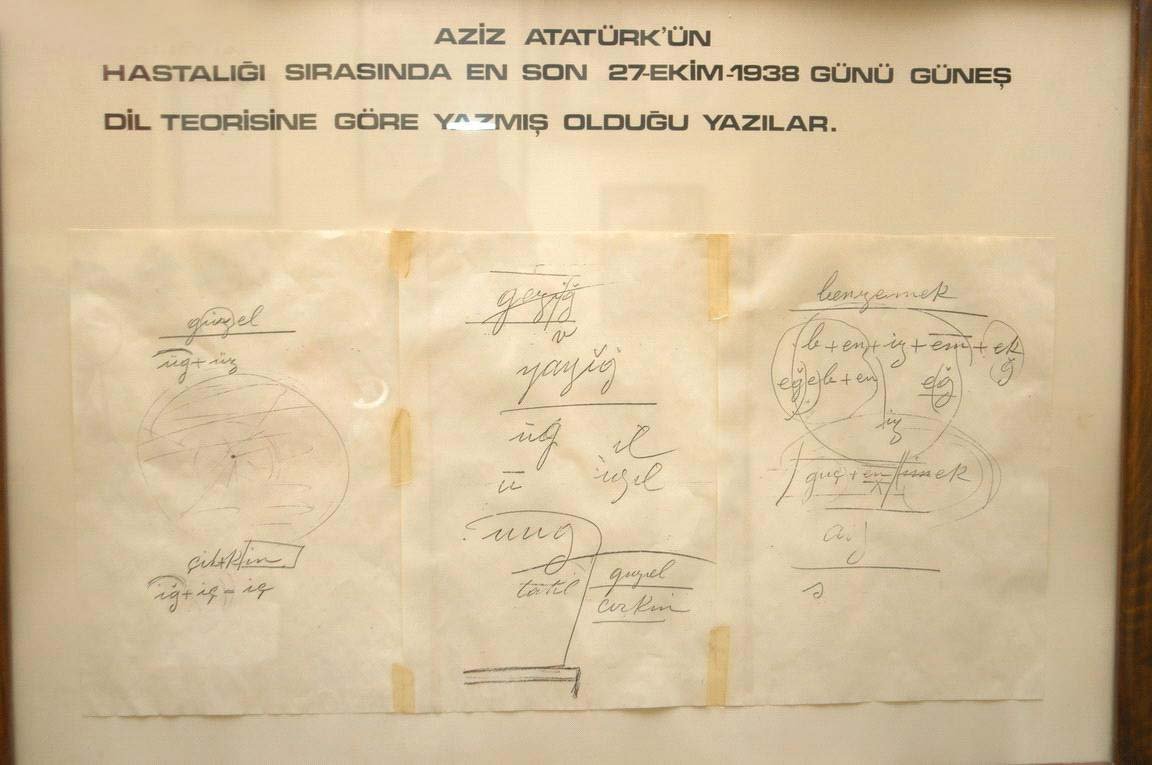 AZİZ ATATÜRK'ÜN
HASTALIĞI SIRASINDA EN SON 27-EKİM-1938 GÜNÜ GÜNEŞ
DİL TEORİSİNE GÖRE YAZMIŞ OLDUĞU YAZILAR.
güzel
üğ + üz
iğ + iç = iç
v
yayığ
üğ il
ü üzel
tatil
güzel
çirkin
benzemek
b + en + iz + em + ek
ğ
eğeb + en eğ
iz
s